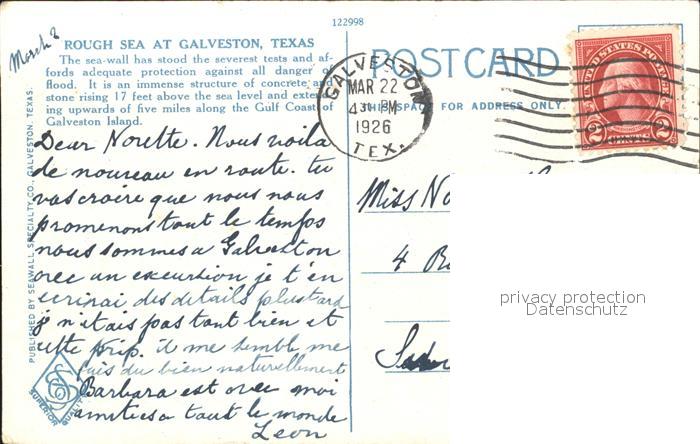 122998
March 2
ROUGH SEA AT GALVESTON, TEXAS
The sea-wall has stood the severest tests and af-
fords adequate protection against all danger of
flood. It is an immense structure of concrete and
stone rising 17 feet above the sea level and extend-
ing upwards of five miles along the Gulf Coast of
Galveston Island.
POST CARD
THIS SPACE FOR ADDRESS ONLY.
GALVESTON
MAR 22
4 30 PM
1926
TEX.
UNITED STATES POSTAGE
2 CENTS 2
PUBLISHED BY SEAWALL SPECIALTY CO., GALVESTON, TEXAS.
SUPERIOR QUALITY
Dear Norette. Nous voila
de nouveau en route. tu
vas croire que nous nous
promenons tout le temps
nous sommes a Galveston
avec un excursion je t'en
ecrirai des details plus tard
je n'etais pas tout bien et
cette trip. il me semble me
fais du bien naturellement
Barbara est avec moi
amities a tout le monde
Leon
Miss No
4 B
privacy protection
Datenschutz